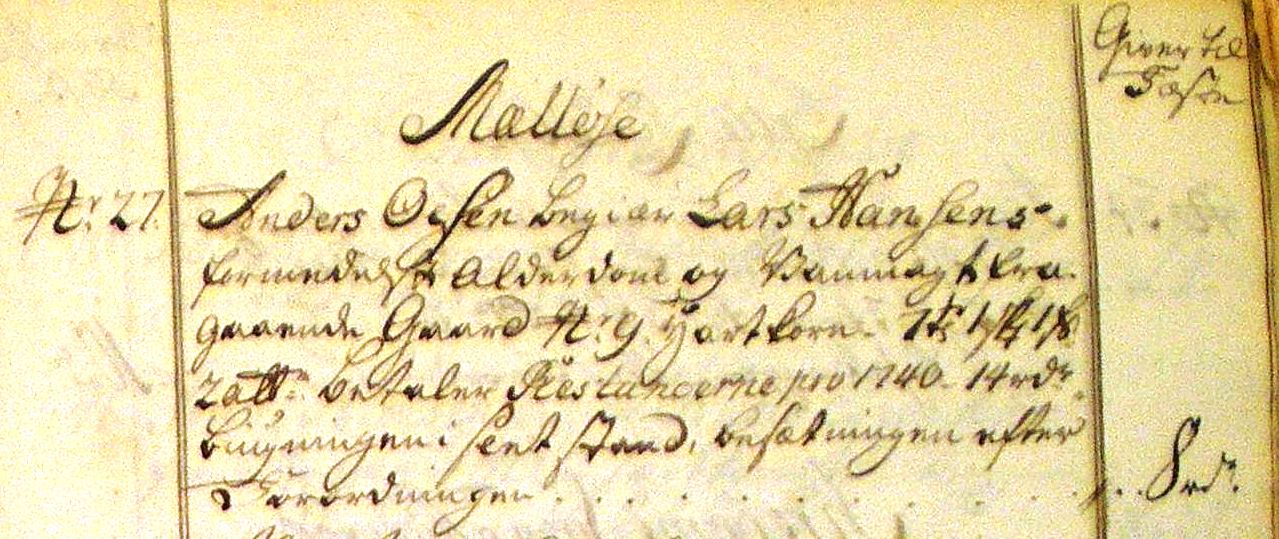 Giver til
Fæste
Mälløse
No 27. Anders Olsen begiær Lars Hansens
formedelst Alderdom og Vanmagt fra
gaaende Gaard No 9. Hartkorn 7 td 1 skp 1 f
2 alb. betaler Restancerne pro 1740 14 rdr.
bÿgningen i sent stand, besætningen efter
Forordningen . . . . . . . . . 8 rdr.